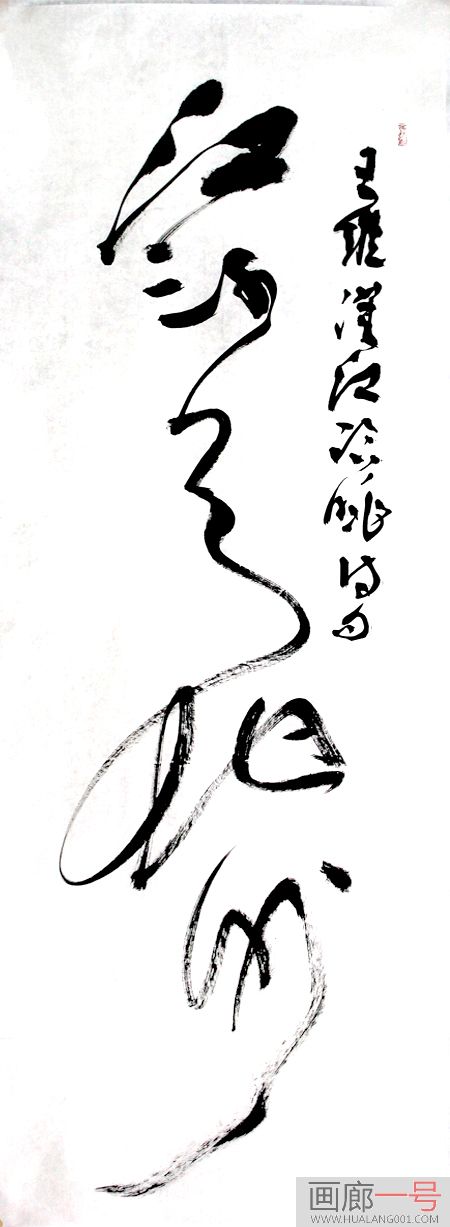 王維漢江臨眺詩句
江流天地外
画廊一号
WWW.HUALANG001.COM